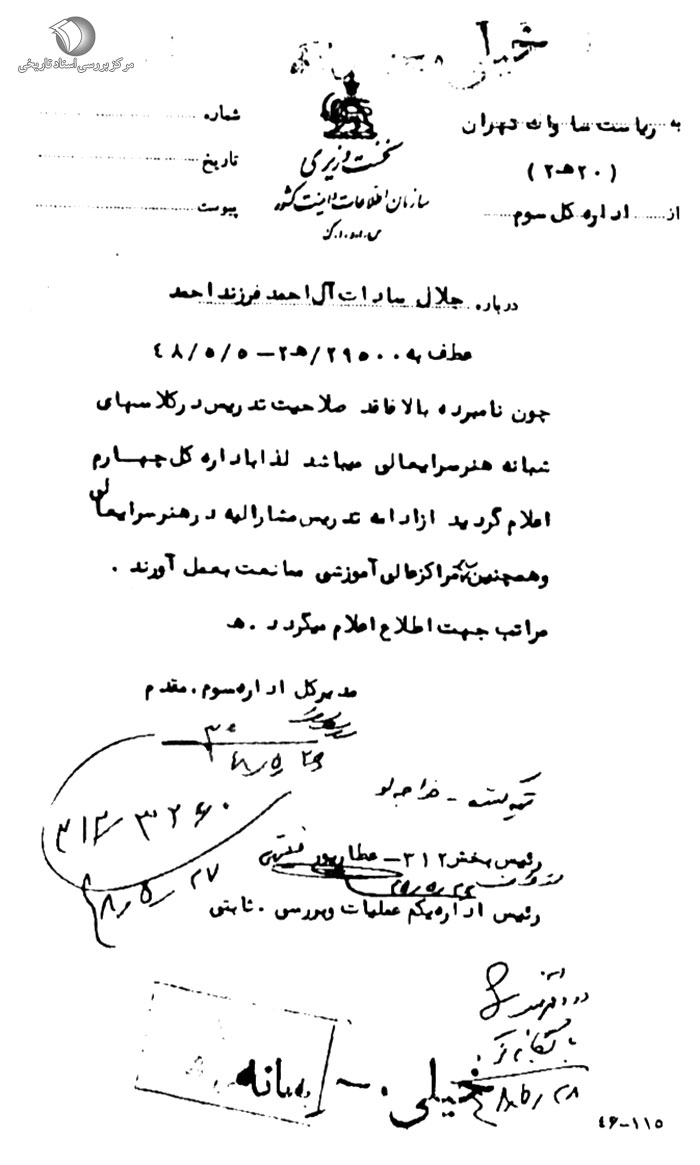 مرکز بررسی اسناد تاریخی
خیلی
به ریاست ساواک تهران
(۲۰هـ۲)
از اداره کل سوم
نخست وزیری
سازمان اطلاعات و امنیت کشور
س.ا.و.ا.ک
شماره
تاریخ
پیوست
درباره جلال سادات آل احمد فرزند احمد
عطف به ۲۹۵۰۰/هـ۲ – ۴۸/۵/۵
چون نامبرده بالا فاقد صلاحیت تدریس در کلاسهای
شبانه هنرسرایعالی میباشد لذا باداره کل چهارم
اعلام گردید از ادامه تدریس مشارالیه در هنرسرایعالی
وهمچنین سایر مراکز عالی آموزشی ممانعت بعمل آورند .
مراتب جهت اطلاع اعلام میگردد . هـ
مدیرکل اداره سوم . مقدم
۴۸/۵/۲۶
۳۱۲/۳۲۶۰
۴۸/۵/۲۷
تهیه کننده - خواجه لو
رئیس بخش ۳۱۲ – عطارپور
رئیس اداره یکم عملیات وبررسی . ثابتی
بایگانی
خیلی محرمانه
۴۶-۱۱۵